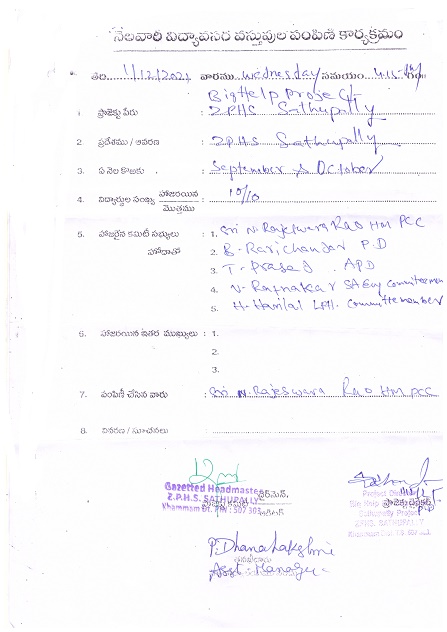 నెలవారి విద్యావసర వస్తువుల పంపిణి కార్యక్రమం
తేది. 1/12/2021 వారము wednesday సమయం 4.15
BigHelp Project
1 ప్రాజెక్టు పేరు : ZPHS Sathupally
2 ప్రదేశము / ఆవరణ : ZPHS Sathupally
3. ఏ నెల కొరకు : September & October
4. విద్యార్థుల సంఖ్య హాజరయిన / మొత్తము : 10/10
5. హాజరైన కమిటీ సభ్యులు : 1. Sri N. Rajeswara Rao HM PCC
హోదాతో 2. B. Ravichandar P.D
3. T. Prasad . APD
4. V. Ratnakar SA Eng Committee mem
5. H. Harilal LPH. Committe member
6. హాజరయిన ఇతర ముఖ్యులు : 1.
2.
3.
7. పంపిణీ చేసిన వారు : Sri N Rajeswara Rao HM PCC
8. వివరణ / సూచనలు :
Gazetted Headmaster
Z.P.H.S. SATHUPALLY
Khammam Dt. PIN : 507 303
ఛైర్మెన్,
Project Director
Big Help ప్రాజెక్టు డైరెక్టర్
Sathupally Project
Z.P.H.S. SATHUPALLY
P. Dhanalakshmi
Asst. Manager